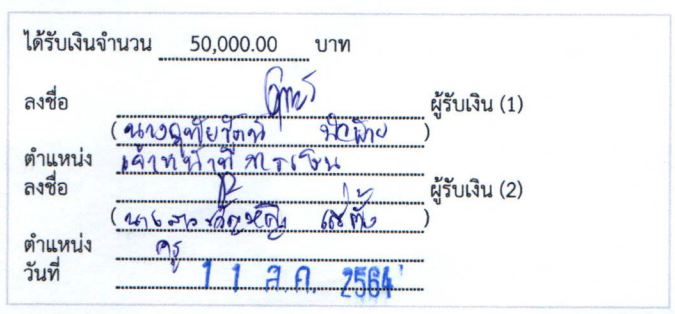 ได้รับเงินจำนวน 50,000.00 บาท
ลงชื่อ ผู้รับเงิน (1)
( นางฤทัยรัตน์ )
ตำแหน่ง เจ้าหน้าที่การเงิน
ลงชื่อ ผู้รับเงิน (2)
( นางสาวขวัญหญิง )
ตำแหน่ง ครู
วันที่ 11 ส.ค. 2564